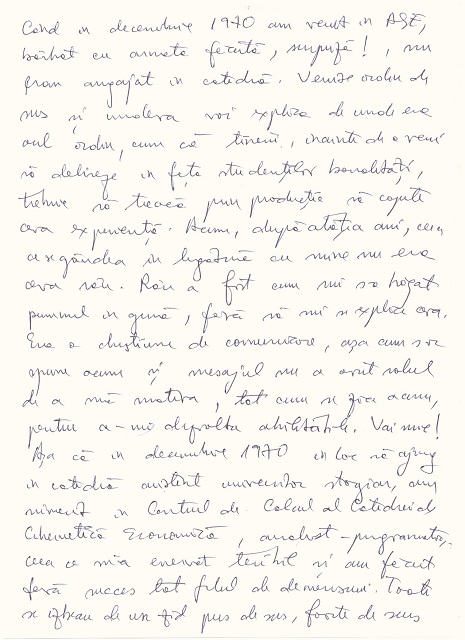 Când în decembrie 1970 am venit în ASE,
bărbat cu armata făcută, surpriză!, nu
eram angajat în catedră. Venise ordin de
sus și undeva voi explica de unde era
acel ordin, cum că tinerii, înainte de a veni
să delireze în fața studenților banalități,
trebuie să treacă prin producție să capete
ceva experiență. Acum, după atâția ani, ceea
ce se gândea în legătură cu mine nu era
ceva rău. Rău a fost cum mi s-a băgat
pumnul în gură, fără să mi se explice ceva.
Era o chestiune de comunicare, așa cum s-ar
spune acum și mesajul nu a avut rolul
de a mă motiva, tot cum se zice acum,
pentru a-mi dezvolta abilitățile. Vai mie!
Așa că în decembrie 1970 în loc să ajung
în catedră asistent universitar stagiar, am
nimerit în Centrul de Calcul al Catedrei de
Cibernetică Economică, analist-programator,
ceea ce m-a enervat teribil și am făcut
fără succes tot felul de demersuri. Toate
se izbeau de un zid pus de sus, foarte de sus